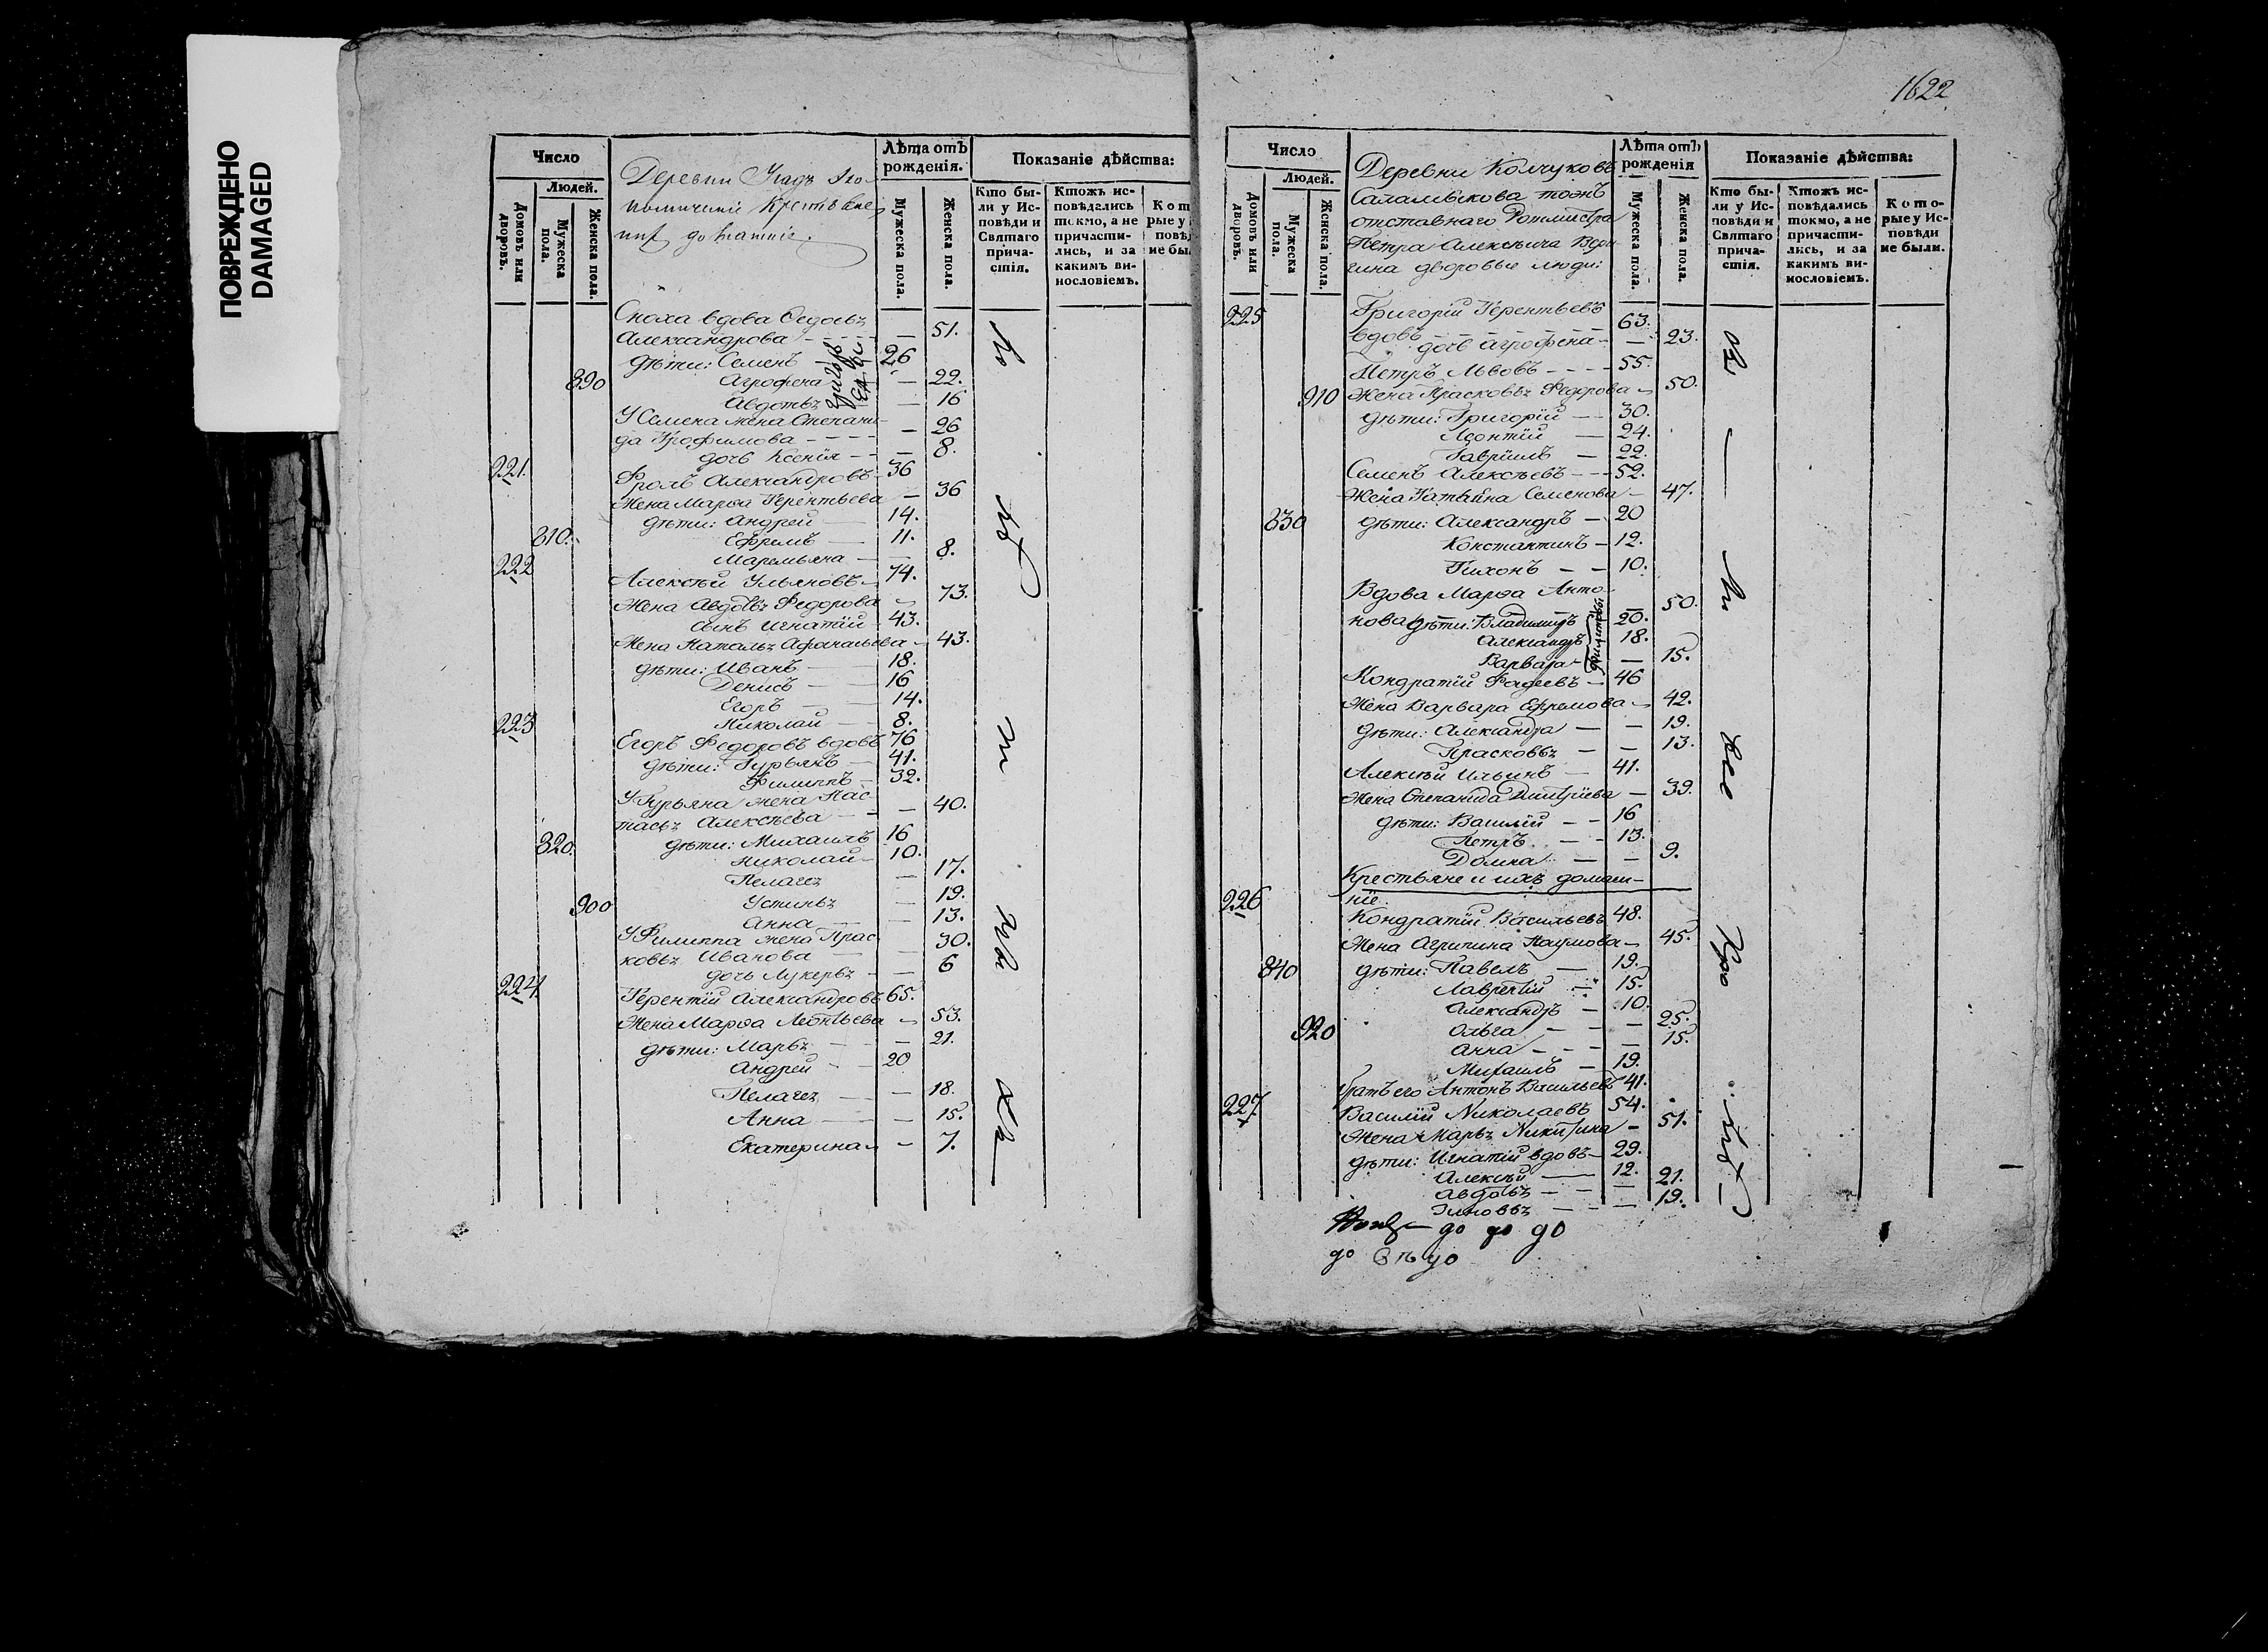 ПОВРЕЖДЕНО
DAMAGED
Число
Людей.
Домовъ или дворовъ.
Мужеска пола.
Женска пола.
Деревни
Лѣта отъ рожденія.
Мужеска пола.
Женска пола.
Показаніе дѣйства:
Кто были у Исповѣди и Святаго причастія.
Ктожъ исповѣдались токмо, а не причастились, и за какимъ виносло­віемъ.
Сноха вдова Федосьѣ
Александрова - - - - — 51.
дѣти: Семенъ 26
890 Агрофена — 22.
Авдотьѣ — 16
У Семена жена Степани-
да Трофимова - - - - — 26
дочь Ксенія - - — 8.
221. Фролъ Александровъ 36
Жена Марѳа Терентьева — 36
дѣти: Андрей — 14.
810. Ефремъ — 11.
Маремьяна — — 8.
222 Алексѣй Ульяновъ 74.
Жена Авдотьѣ Федорова 73.
сынъ Игнатій 43.
Жена Натальѣ Афонасьева 43.
дѣти: Иванъ — 18.
Денисъ — 16
Егоръ — 14.
Николай — 8.
223 Егоръ Федоровъ вдовъ 76
дѣти: Гурьянъ — 41.
Филиппъ — 32.
У Гурьяна жена Нас-
тасьѣ Алексѣева — 40.
820. дѣти: Михаилъ 16
Николай 10.
Пелагеѣ — 17.
900 Устиньѣ — 19.
Анна — 13.
У Филиппа жена Прас-
ковьѣ Иванова — 30.
дочь Лукерьѣ — 6
224 Терентій Александровъ 65.
Жена Марѳа Леонтьева 53.
дѣти: Марьѣ — 21.
Андрей — 20
Пелагеѣ — — 18.
Анна — — 15.
Екатерина — 7.
1622
Число
Людей.
Домовъ или дворовъ.
Мужеска пола.
Женска пола.
Деревни Колчуковъ
Саламыкова тожъ
отставнаго Ротмистра
Петра Алексѣича Вери-
гина дворовые люди:
Лѣта отъ рожденія
Мужеска пола.
Женска пола.
Показаніе дѣйства:
Кто были у Исповѣди и Святаго причастія.
Ктожъ исповѣдались токмо, а не причастились, и за какимъ виносло­віемъ.
Которые у Исповѣди не были.
225 Григорій Терентьевъ
вдовъ — 63.
дочь Агрофена — 23.
Петръ Львовъ - - - - 55.
910 Жена Прасковьѣ Федорова 50.
дѣти: Григорій — 30.
Леонтій — 24.
Гавріилъ — 22.
Семенъ Алексѣевъ - - - 52.
Жена Татьяна Семенова — 47.
830 дѣти: Александръ — 20
Константинъ — 12.
Тихонъ — — 10.
Вдова Марѳа Анто-
нова — 50.
дѣти: Владимиръ 20.
Александръ 18.
Варвара — 15.
Кондратій Фадеевъ — 46
Жена Варвара Ефремова 42.
дѣти: Александра — — 19.
Прасковьѣ — — 13.
Алексѣй Ильинъ — 41.
Жена Степанида Дмитріева — 39.
дѣти: Василій — — 16
Петръ — — 13.
Домна — — 9.
Крестьяне и ихъ домаш-
ніе:
226 Кондратій Васильевъ 48.
Жена Агрипина Наумова 45.
840 дѣти: Павелъ — 19.
Лаврентій — 15.
Александръ — 10.
920 Ольга — — 25.
Анна - - - — 15.
Михаилъ — 19.
братъ его Антонъ Васильевъ 41.
227 Василій Николаевъ 54.
Жена Марьѣ Никитина — 51.
дѣти: Игнатій вдовъ 29.
Алексѣй — 12.
Авдотьѣ — — 21.
Зиновьѣ — — 19.
до до до
до